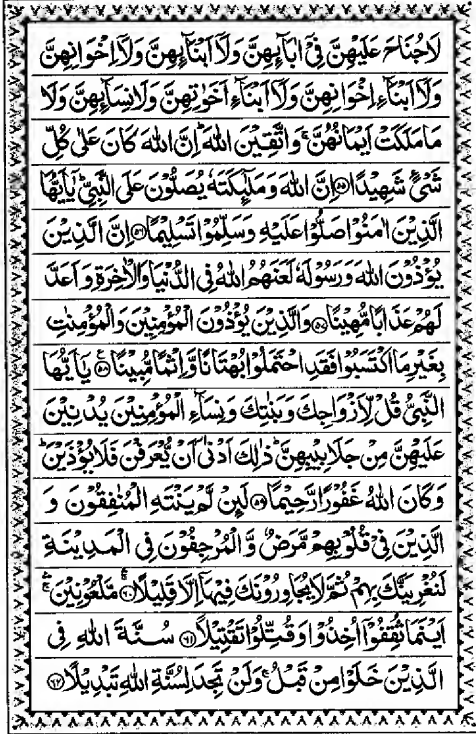 لَاجُنَاحَ عَلَيْهِنَّ فِيْۤ اٰبَآئِهِنَّ وَلَاۤ اَبْنَآئِهِنَّ وَلَاۤ اِخْوَانِهِنَّ
وَلَاۤ اَبْنَآءِ اِخْوَانِهِنَّ وَلَاۤ اَبْنَآءِ اَخَوٰتِهِنَّ وَلَا نِسَآئِهِنَّ وَلَا
مَا مَلَكَتْ اَيْمَانُهُنَّ ۚ وَاتَّقِيْنَ اللهَ ؕ اِنَّ اللهَ كَانَ عَلٰى كُلِّ
شَيْءٍ شَهِيْدًا ﴿۵۵﴾ اِنَّ اللهَ وَمَلٰٓئِكَتَهٗ يُصَلُّوْنَ عَلَى النَّبِيِّ ؕ يٰۤاَيُّهَا
الَّذِيْنَ اٰمَنُوْا صَلُّوْا عَلَيْهِ وَسَلِّمُوْا تَسْلِيْمًا ﴿۵۶﴾ اِنَّ الَّذِيْنَ
يُؤْذُوْنَ اللهَ وَرَسُوْلَهٗ لَعَنَهُمُ اللهُ فِي الدُّنْيَا وَالْاٰخِرَةِ وَاَعَدَّ
لَهُمْ عَذَابًا مُّهِيْنًا ﴿۵۷﴾ وَالَّذِيْنَ يُؤْذُوْنَ الْمُؤْمِنِيْنَ وَالْمُؤْمِنٰتِ
بِغَيْرِ مَا اكْتَسَبُوْا فَقَدِ احْتَمَلُوْا بُهْتَانًا وَّاِثْمًا مُّبِيْنًا ﴿۵۸﴾ ع يٰۤاَيُّهَا
النَّبِيُّ قُلْ لِّاَزْوَاجِكَ وَبَنٰتِكَ وَنِسَآءِ الْمُؤْمِنِيْنَ يُدْنِيْنَ
عَلَيْهِنَّ مِنْ جَلَابِيْبِهِنَّ ؕ ذٰلِكَ اَدْنٰۤى اَنْ يُّعْرَفْنَ فَلَا يُؤْذَيْنَ ؕ
وَكَانَ اللهُ غَفُوْرًا رَّحِيْمًا ﴿۵۹﴾ لَئِنْ لَّمْ يَنْتَهِ الْمُنٰفِقُوْنَ وَ
الَّذِيْنَ فِيْ قُلُوْبِهِمْ مَّرَضٌ وَّ الْمُرْجِفُوْنَ فِي الْمَدِيْنَةِ
لَنُغْرِيَنَّكَ بِهِمْ ثُمَّ لَا يُجَاوِرُوْنَكَ فِيْهَاۤ اِلَّا قَلِيْلًا ﴿۶۰﴾ مَّلْعُوْنِيْنَ ۛۚ
اَيْنَمَا ثُقِفُوْۤا اُخِذُوْا وَقُتِّلُوْا تَقْتِيْلًا ﴿۶۱﴾ سُنَّةَ اللهِ فِي
الَّذِيْنَ خَلَوْا مِنْ قَبْلُ ۚ وَلَنْ تَجِدَ لِسُنَّةِ اللهِ تَبْدِيْلًا ﴿۶۲﴾